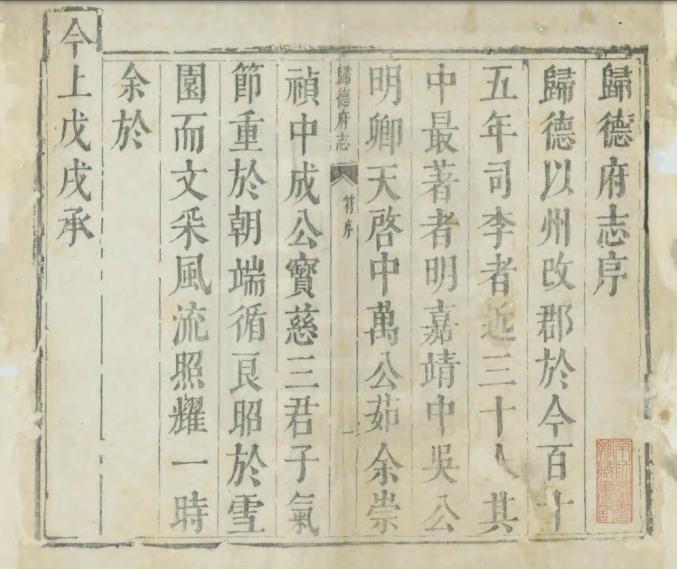 歸德府志序
歸德以州改郡於今百十
五年司李者近三十人其
中最著者明嘉靖中吳公
明卿天啓中萬公茹余崇
歸德府志
符序
一
禎中成公寶慈三君子氣
節重於朝端循良昭於雪
園而文采風流照耀一時
余於
今上戊戌承